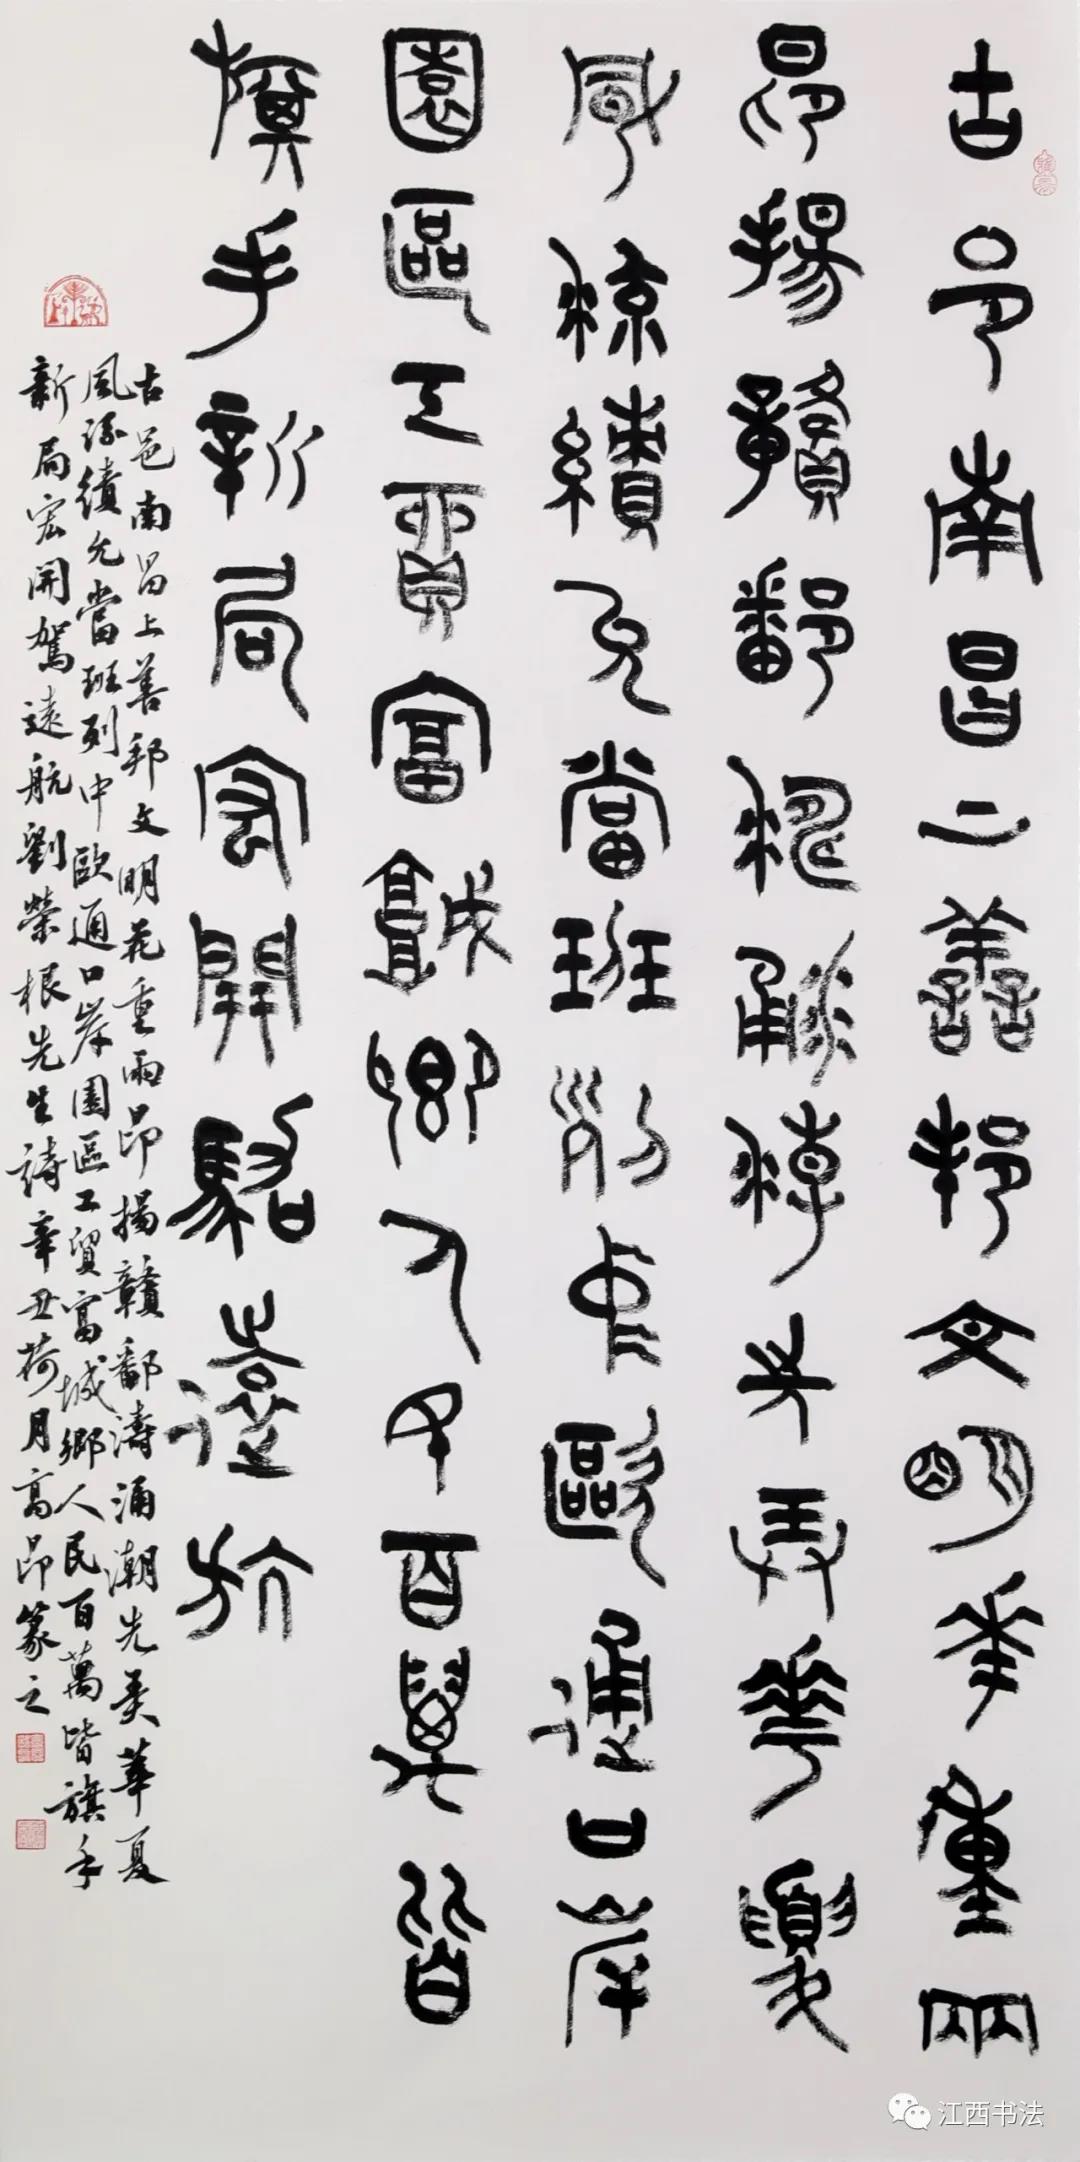 古邑南昌上善邦文明花重雨
昂揚贛鄱濤涌潮先美華夏
風流績允當班列中歐通口岸
園區工貿富城鄉人民百萬皆
旗手新局宏開駕遠航
古邑南昌上善邦文明花重雨昂揚贛鄱濤涌潮先美華夏
風流績允當班列中歐通口岸園區工貿富城鄉人民百萬皆旗手
新局宏開駕遠航劉榮根先生詩辛丑荷月高昂篆之
江西书法